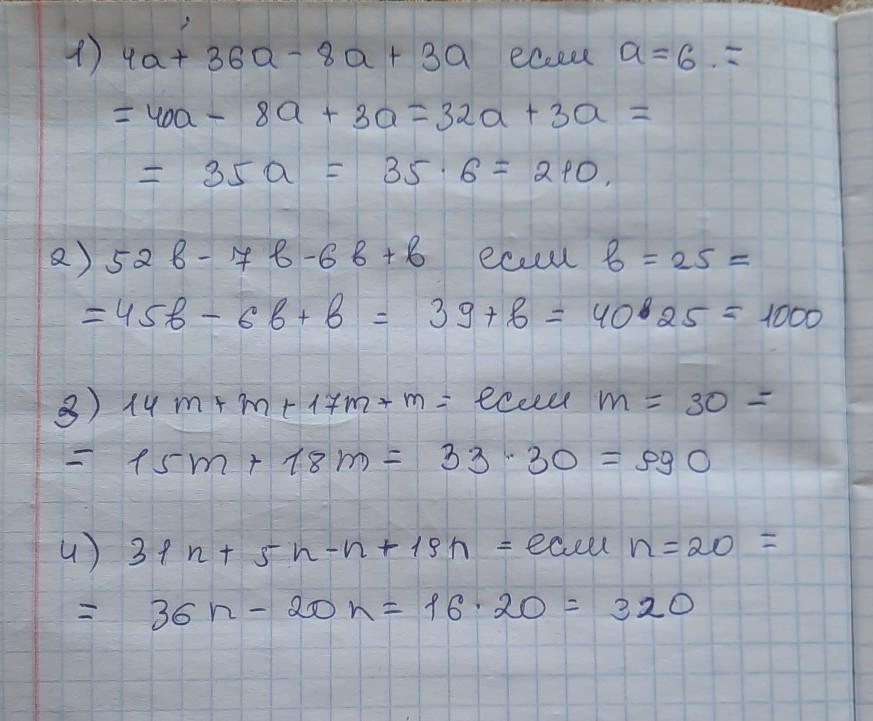 1) 4a + 36a - 8a + 3a если a = 6. =
= 40a - 8a + 3a = 32a + 3a =
= 35a = 35 · 6 = 210.
2) 52в - 7в - 6в + в если в = 25 =
= 45в - 6в + в = 39 + в = 40 · 25 = 1000
3) 14m + m + 17m + m = если m = 30 =
= 15m + 18m = 33 · 30 = 990
4) 31n + 5n - n + 19n = если n = 20 =
= 36n - 20n = 16 · 20 = 320